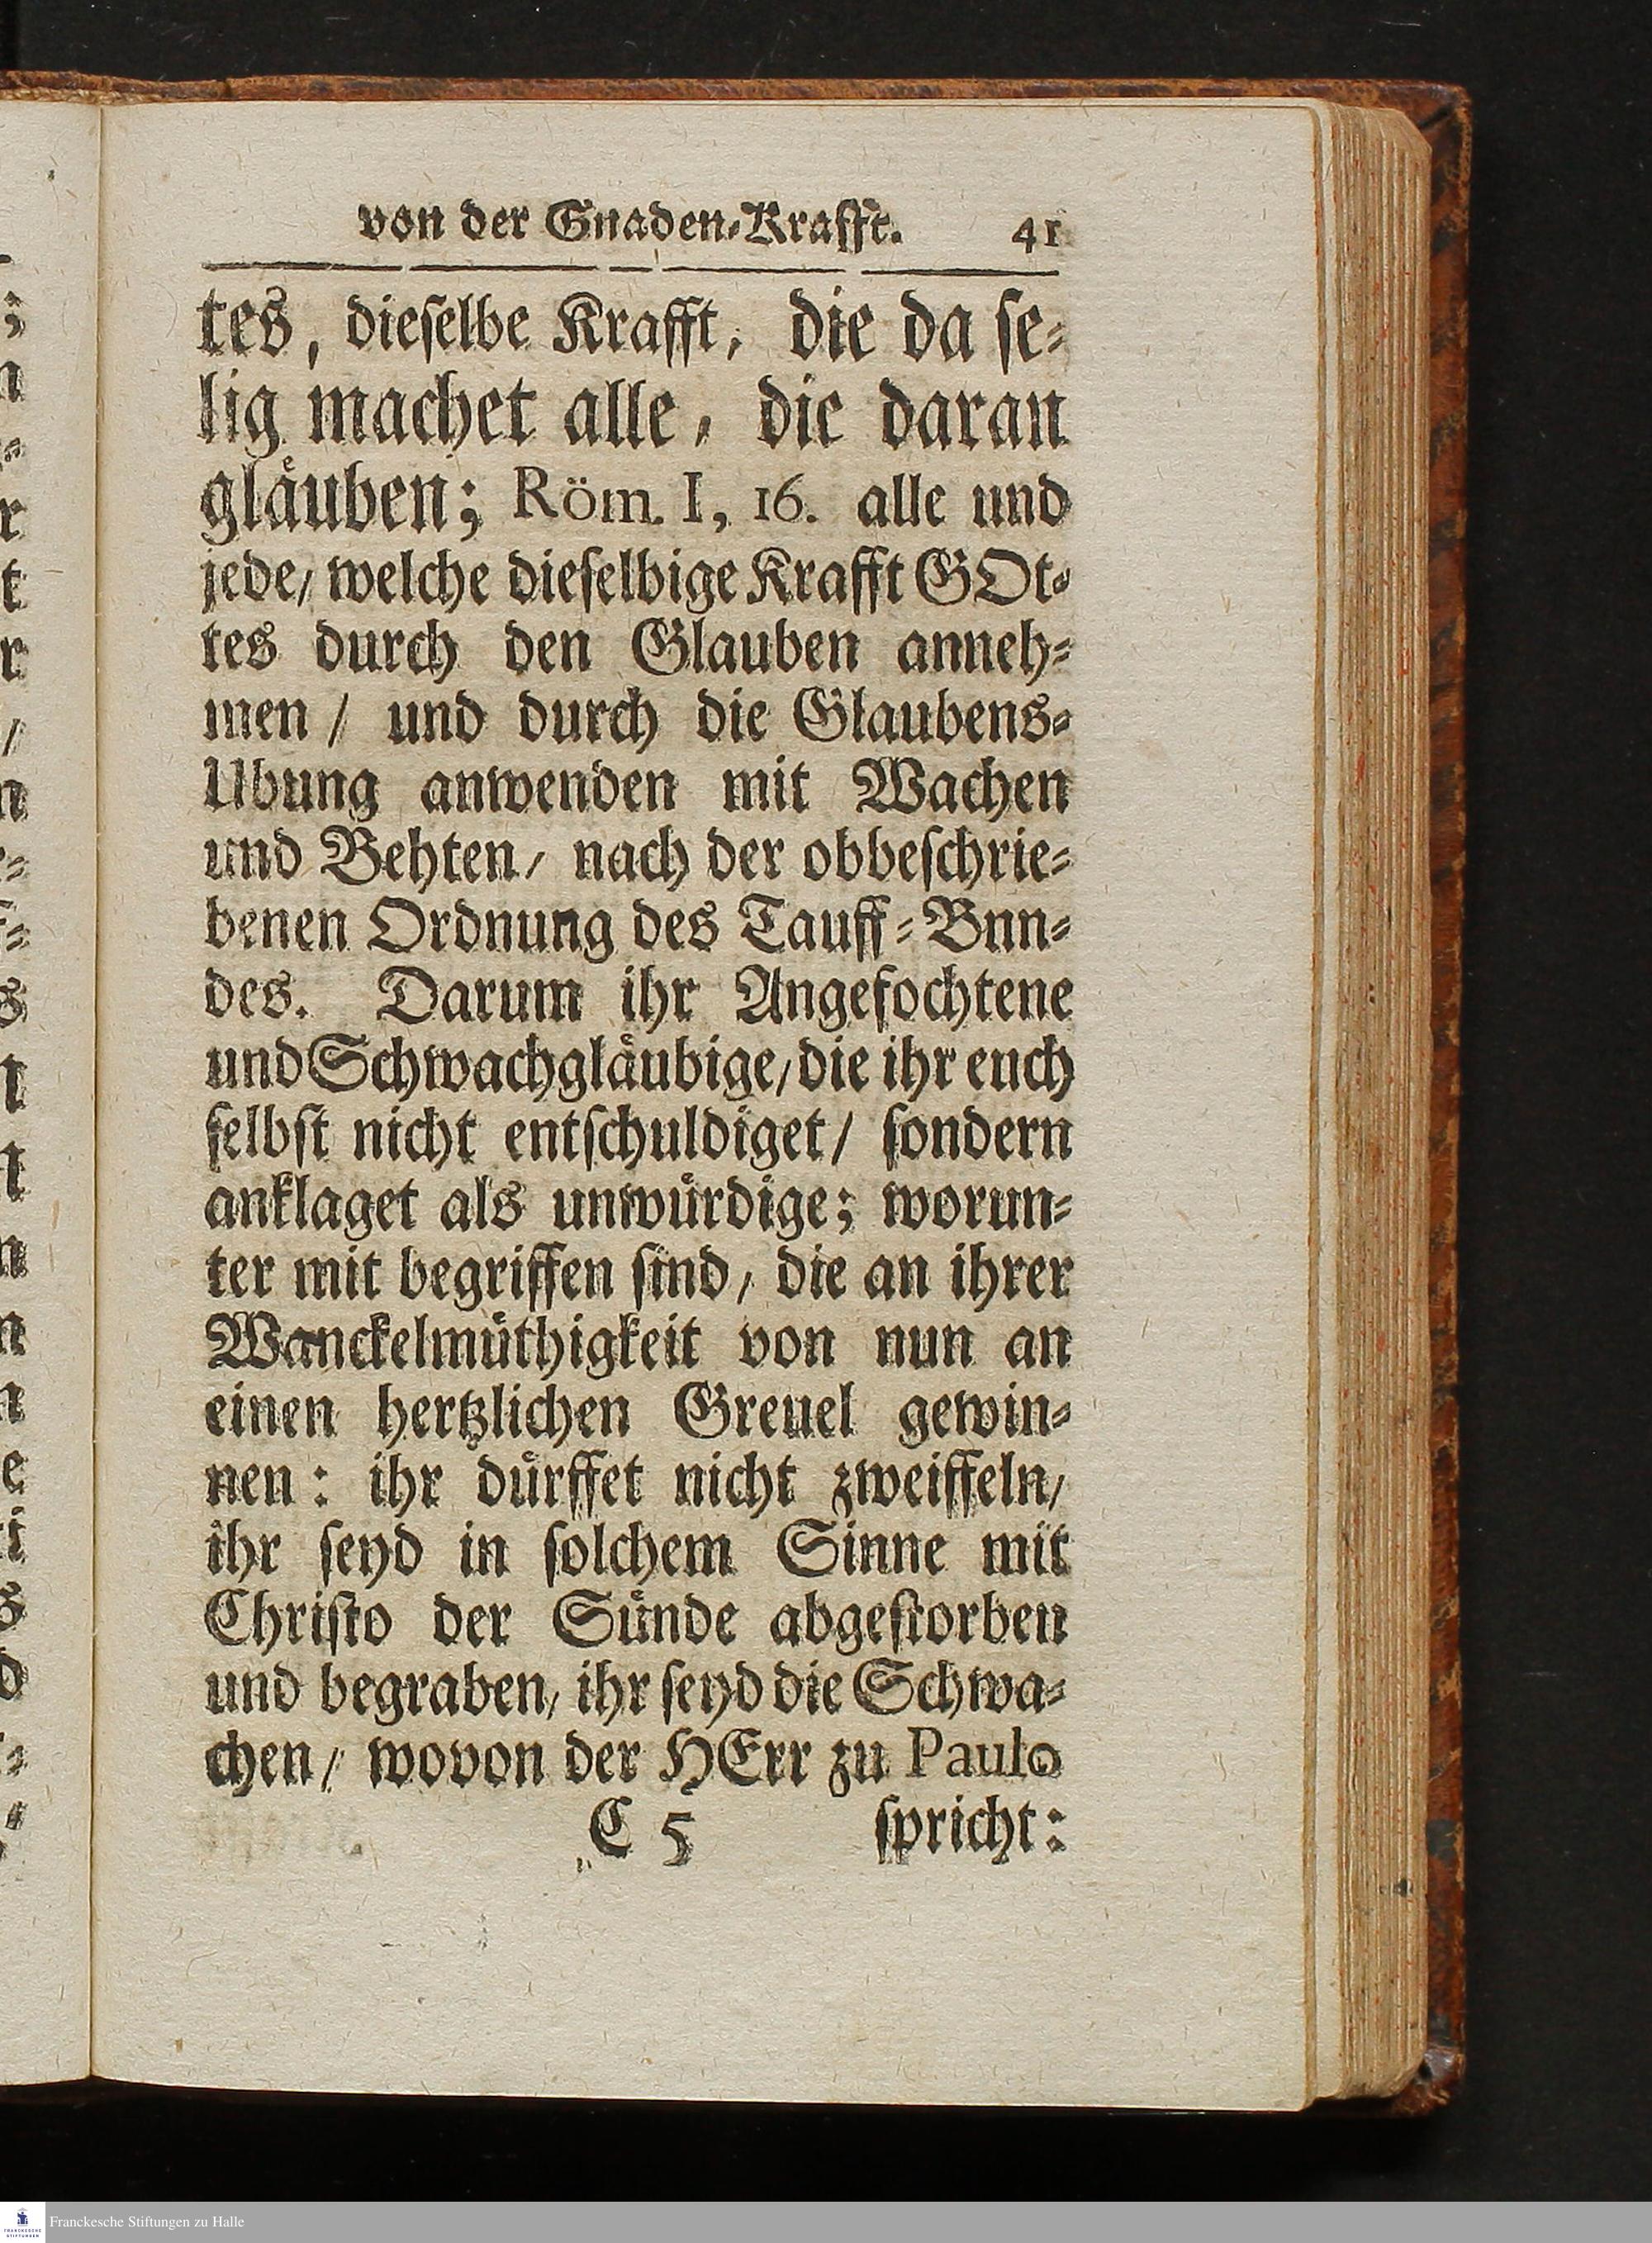 von der Gnaden-Krafft. 41
tes, dieſelbe Krafft, die da ſe-
lig machet alle, die daran
glaͤuben; Röm. I, 16. alle und
jede/ welche dieſelbige Krafft GOt-
tes durch den Glauben anneh-
men / und durch die Glaubens-
Ubung anwenden mit Wachen
und Behten/ nach der obbeſchrie-
benen Ordnung des Tauff-Bnn-
des. Darum ihr Angefochtene
und Schwachglaͤubige/ die ihr euch
ſelbſt nicht entſchuldiget/ ſondern
anklaget als unwuͤrdige; worun-
ter mit begriffen ſind/ die an ihrer
Wanckelmuͤthigkeit von nun an
einen hertzlichen Greuel gewin-
nen: ihr duͤrffet nicht zweiffeln/
ihr ſeyd in ſolchem Sinne mit
Chriſto der Suͤnde abgeſtorben
und begraben/ ihr ſeyd die Schwa-
chen/ wovon der HErr zu Paulo
C 5 ſpricht:
Franckesche Stiftungen zu Halle